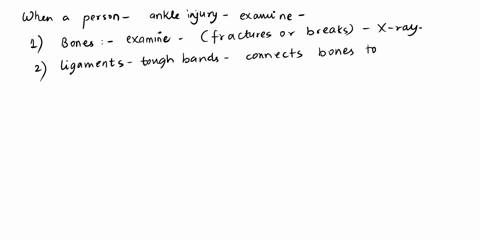 When a person - ankle injury - examine -
1) Bones :- examine - (fractures or breaks) - X-ray.
2) ligaments - tough bands - connects bones to